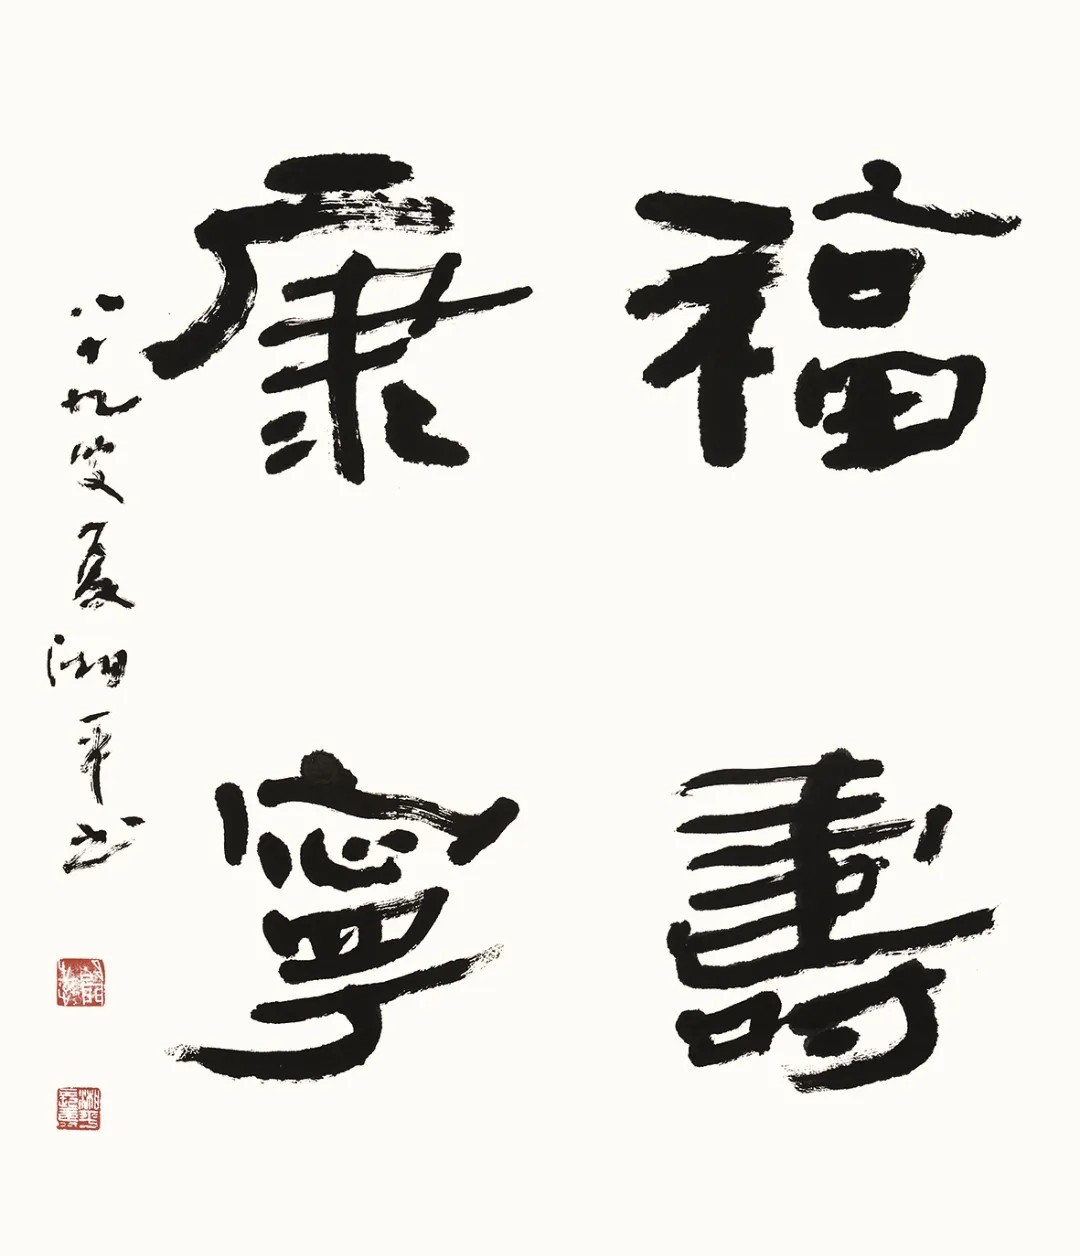 福壽
康寧
八十九叟夏湘平书